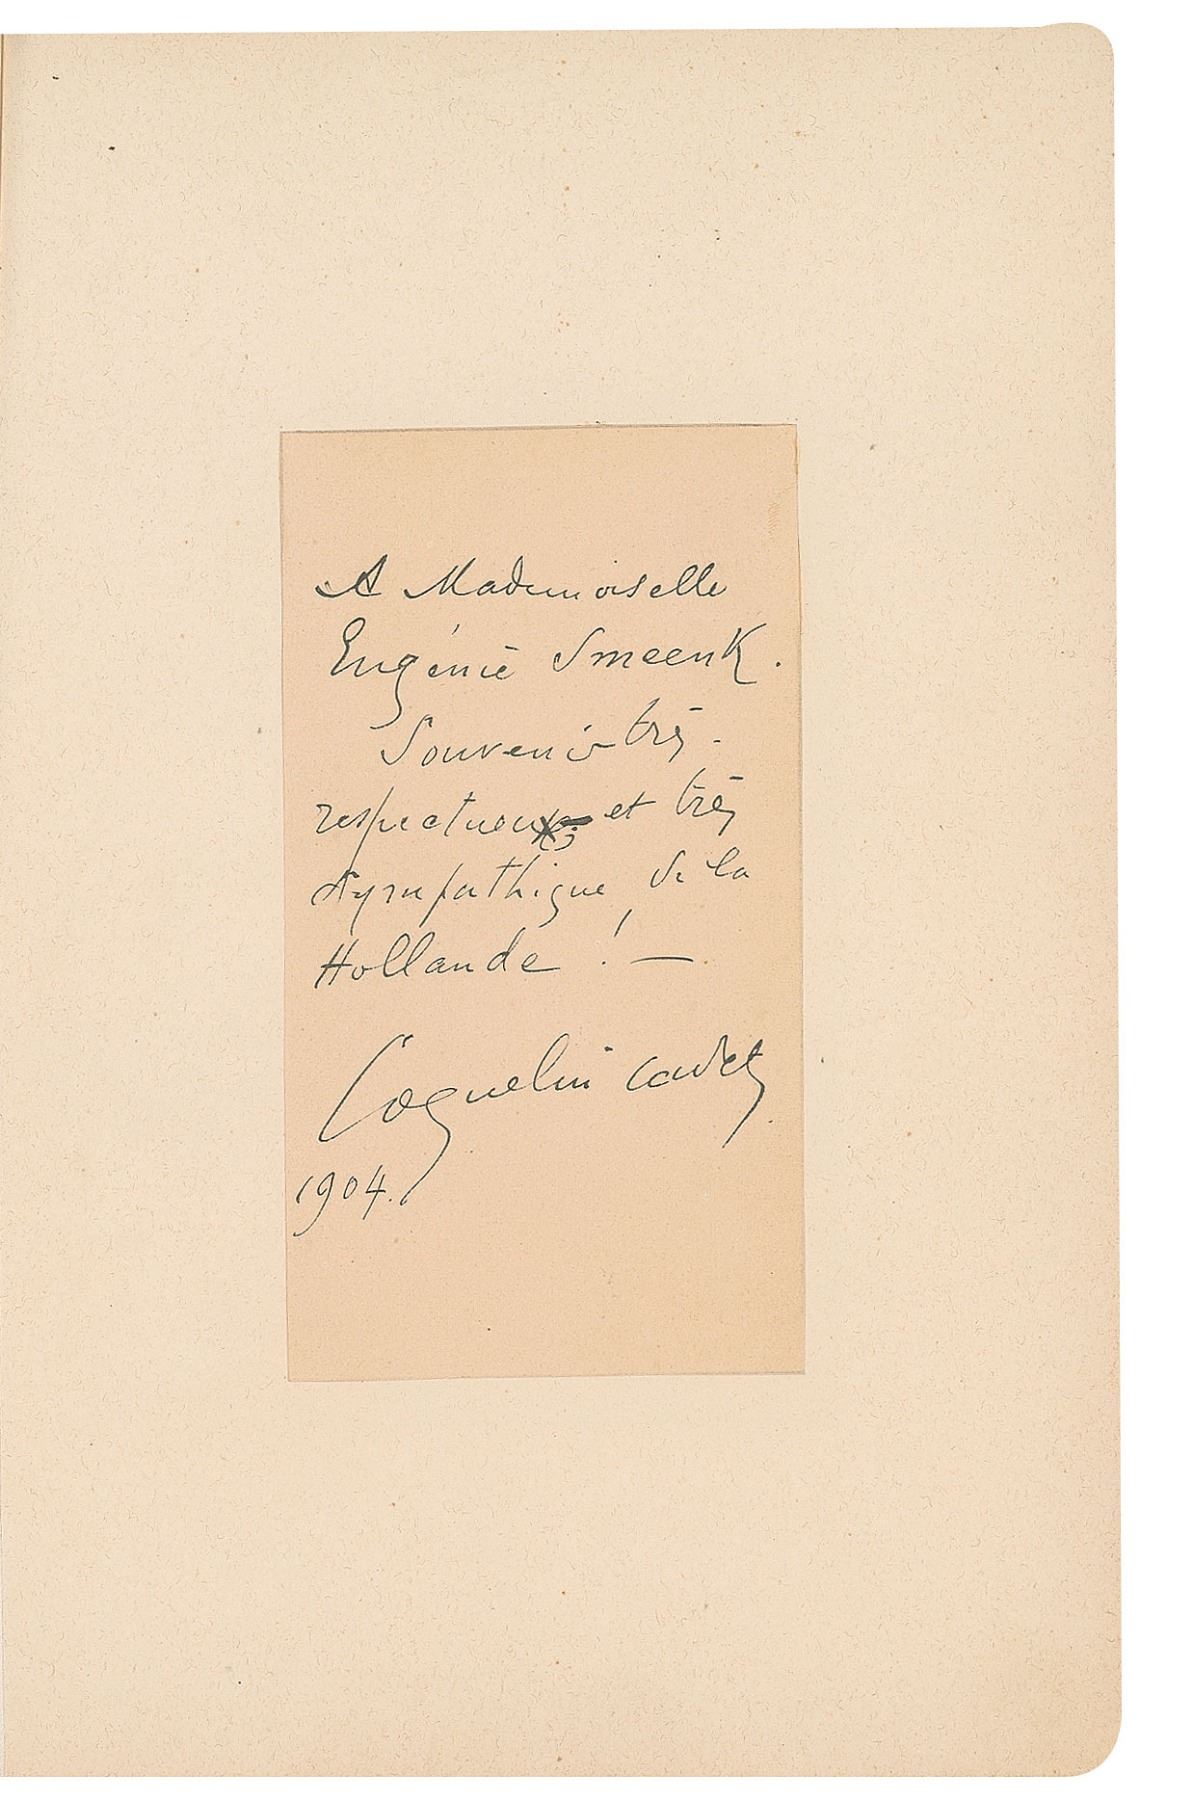 A Mademoiselle
Eugénie Smeenk.
Souvenir très
respectueux et très
sympathique de la
Hollande ! —
Coquelin cadet
1904.